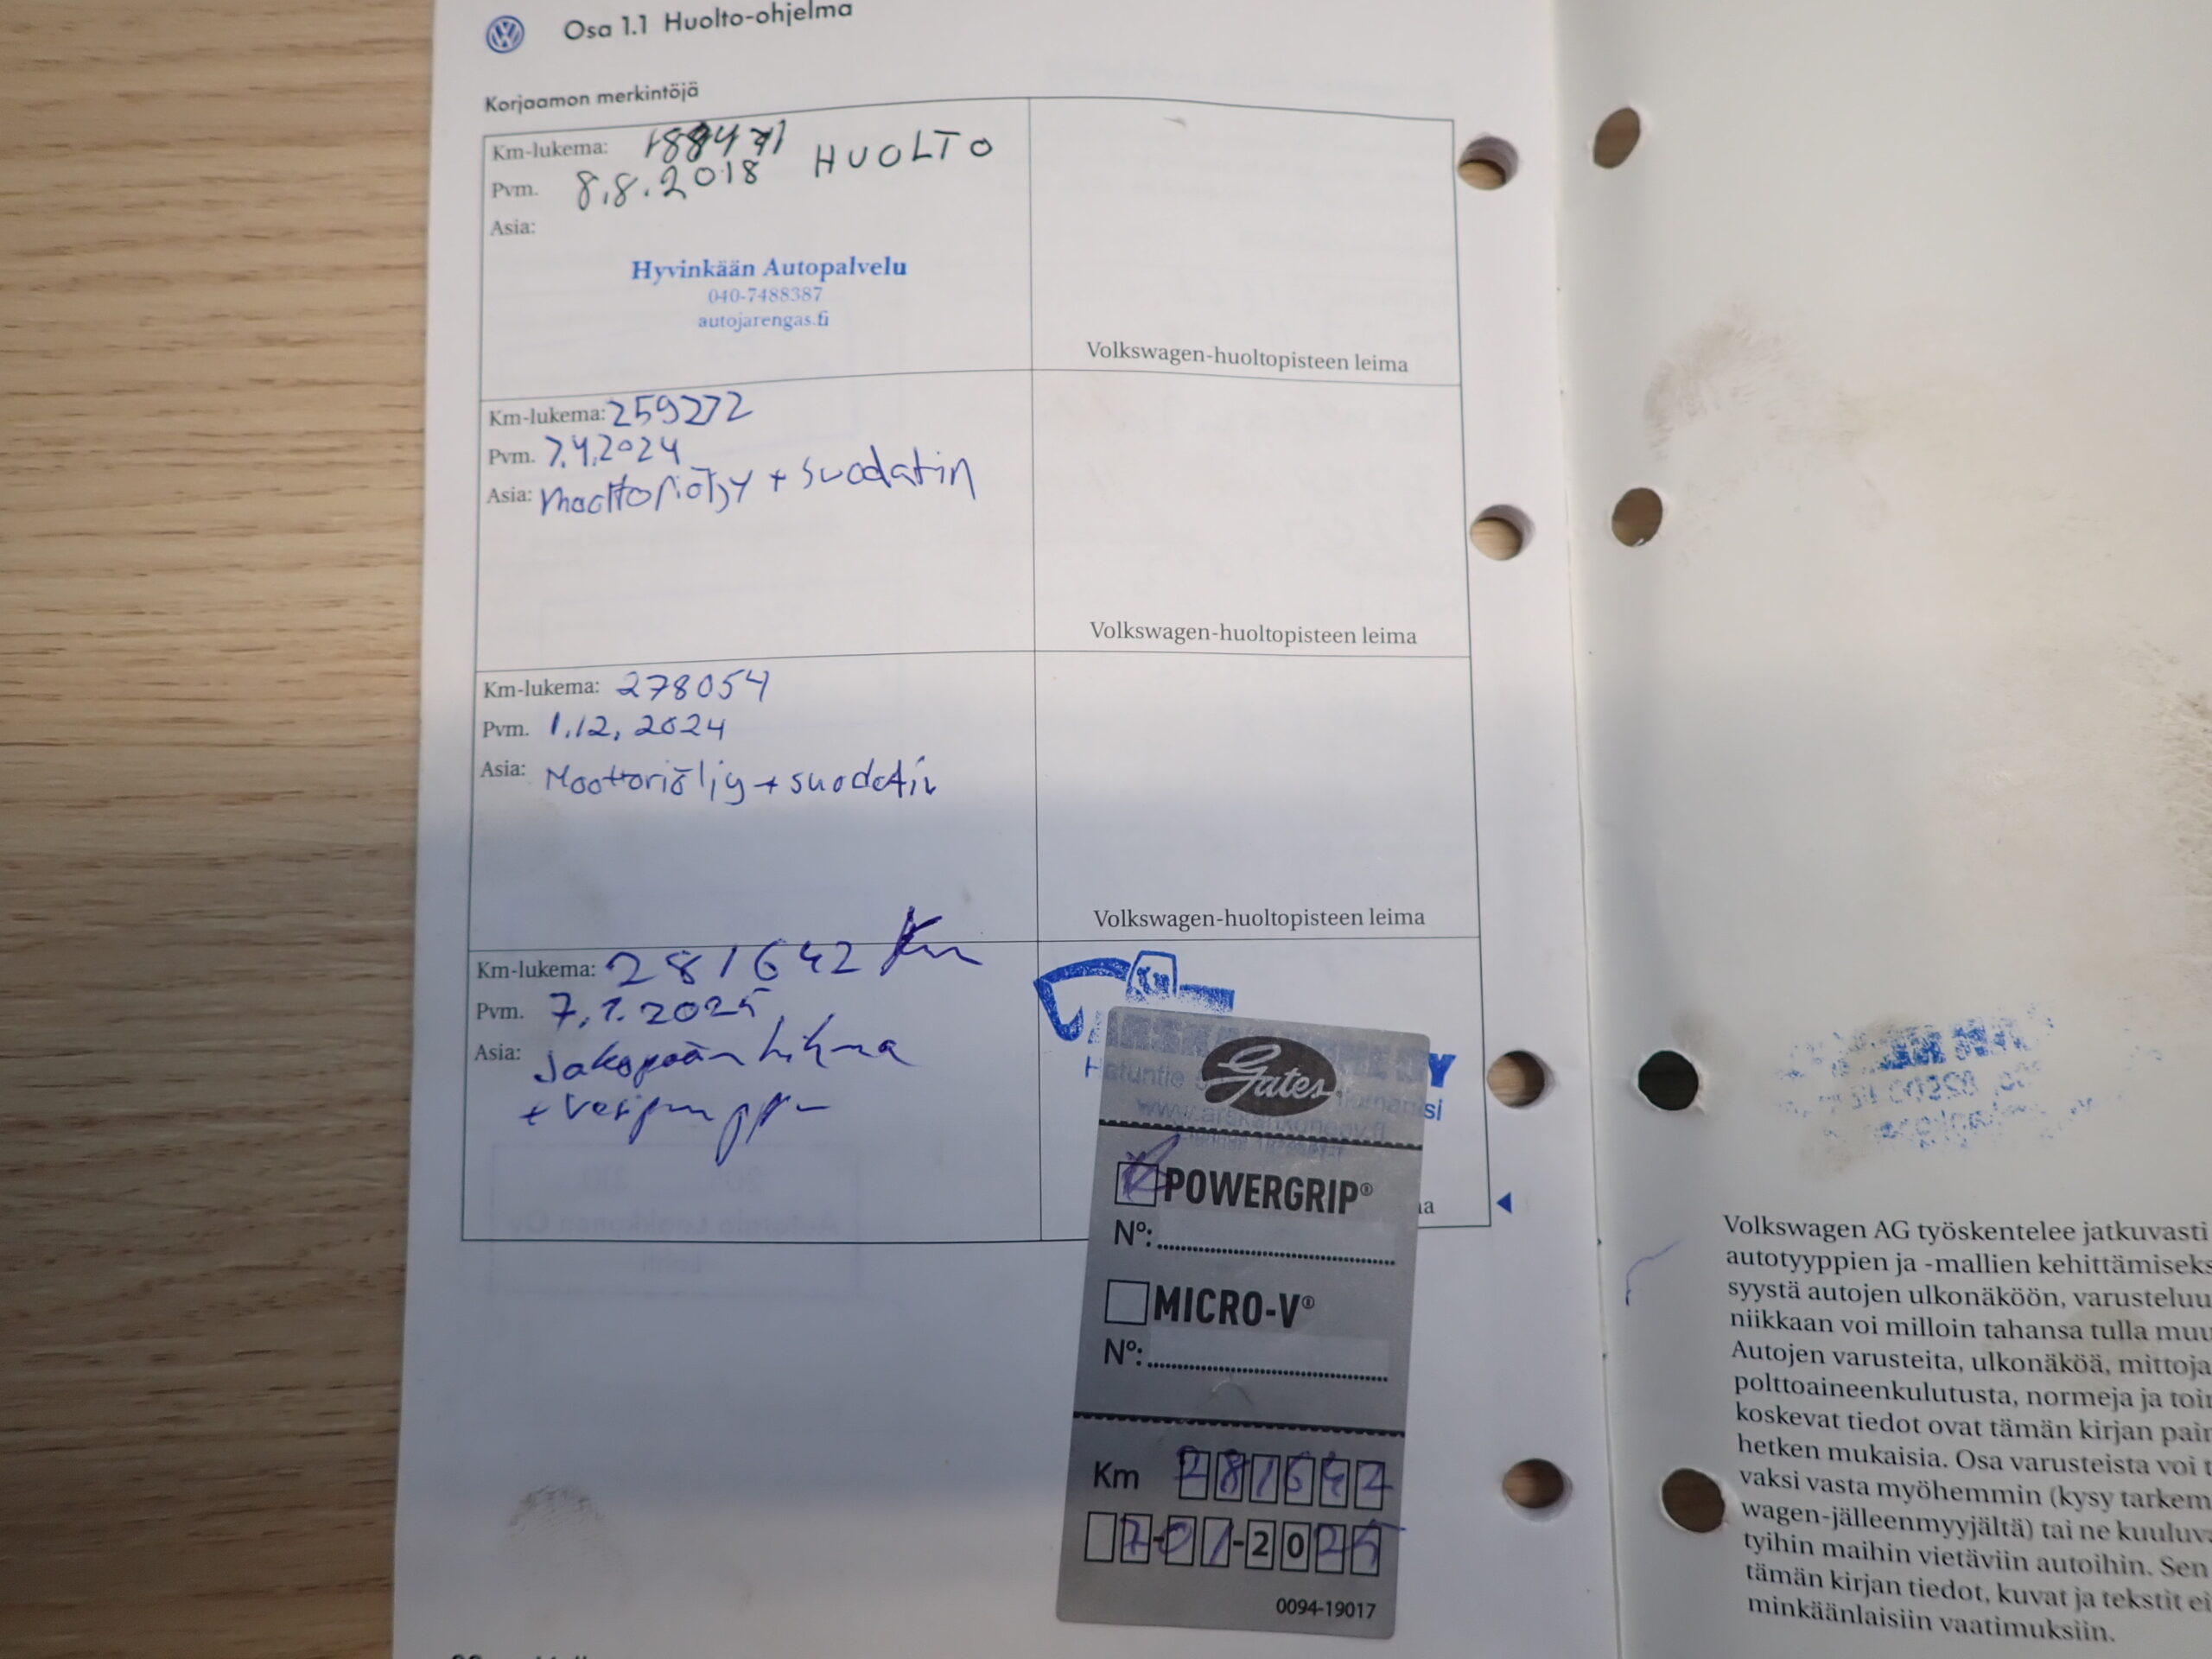 Osa 1.1 Huolto-ohjelma
Korjaamon merkintöjä
Km-lukema:
Pvm. 8.8.2018 HUOLTO
Asia:
Hyvinkään Autopalvelu
040-7488387
autojarengas.fi
Volkswagen-huoltopisteen leima
Km-lukema: 259272
Pvm. 7.4.2024
Asia: moottoriöljy + suodatin
Volkswagen-huoltopisteen leima
Km-lukema: 278054
Pvm. 1.12.2024
Asia: Moottoriöljy + suodatin
Volkswagen-huoltopisteen leima
Km-lukema: 281642 Km
Pvm. 7.1.2025
Asia: Jakopään hihna
+ vesipumppu
Gates
POWERGRIP®
Nº:
MICRO-V®
Nº:
Km 281642
7-01-2025
0094-19017
Volkswagen AG työskentelee jatkuvasti
autotyyppien ja -mallien kehittämiseks
syystä autojen ulkonäköön, varusteluu
niikkaan voi milloin tahansa tulla muu
Autojen varusteita, ulkonäköä, mittoja
polttoaineenkulutusta, normeja ja toin
koskevat tiedot ovat tämän kirjan pain
hetken mukaisia. Osa varusteista voi t
vaksi vasta myöhemmin (kysy tarkem
wagen-jälleenmyyjältä) tai ne kuuluva
tyihin maihin vietäviin autoihin. Sen
tämän kirjan tiedot, kuvat ja tekstit ei
minkäänlaisiin vaatimuksiin.